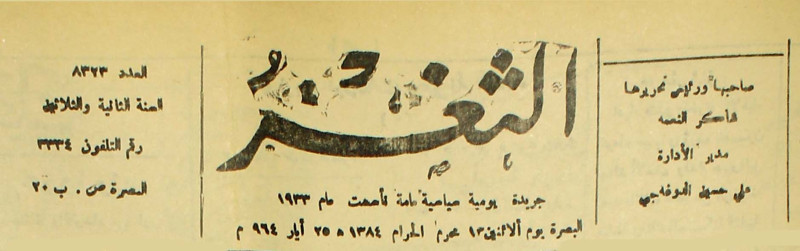 صاحبها ورئيس تحريرها
شاكر النعمه
مدير الأدارة
علي حسين الدوغه‌جي
الثغر
جريدة يومية سياسية عامة تأسست عام ١٩٣٣
البصرة يوم ألاثنين ١٣ محرم الحرام ١٣٨٤ ه ٢٥ أيار ٩٦٤ م
العدد ٨٣٢٣
السنة الثانية والثلاثين
رقم التلفون ٣٣٣٤
البصرة ص . ب ٢٠